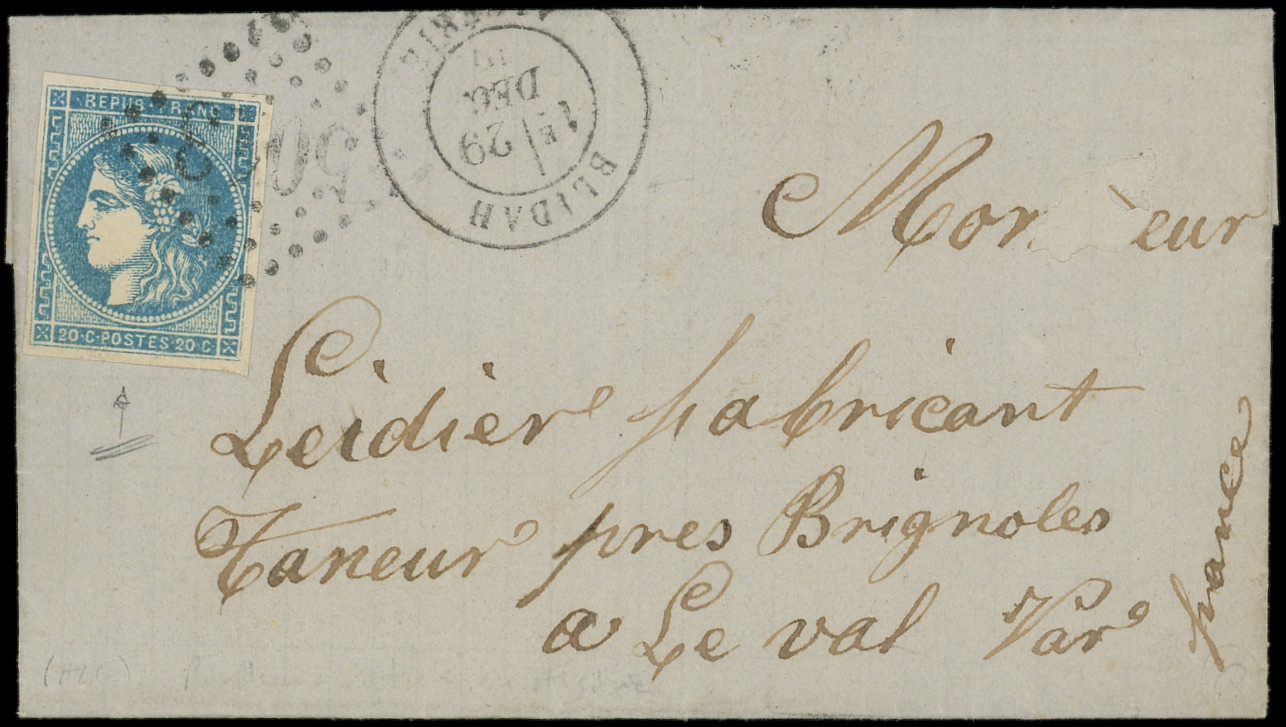 REPUB · FRANC ·
20 · C · POSTES · 20 · C
1E
29
DEC.
BLIDAH
Mon eur
Leidier fabricant
Taneur pres Brignoles
a Le val Var
france